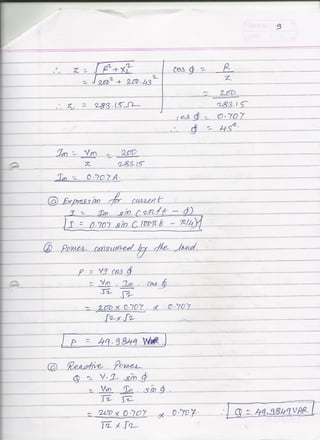 9
∴ Z = √R² + XL²
= √200² + 200.43²
∴ Z = 283.15 Ω
cos φ = R / Z
= 200 / 283.15
cos φ = 0.707
∴ φ = 45°
Im = Vm / Z = 200 / 283.15
Im = 0.707 A
ⓐ Expression for current
I = Im sin (2πft - φ)
I = 0.707 sin (100πt - π/4)
ⓑ Power consumed by the load.
P = VI cos φ
= Vm/√2 . Im/√2 . cos φ
= 200 x 0.707 / √2 x √2 x 0.707
P = 49.9849
ⓒ Reactive Power
Q = V.I sin φ
= Vm/√2 Im/√2 . sin φ.
= 200 x 0.707 / √2 x √2 x 0.707. ∴ Q = 49.9849 VAR